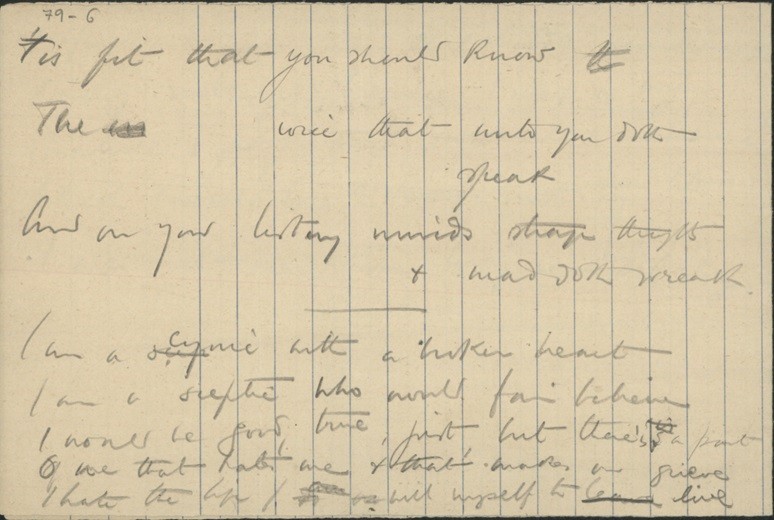 79-6
'tis fit that you should know
The voice that unto you doth
speak
And on your list'ning minds strange thoughts
& mad doth wreak.
I am a cynic with a broken heart
I am a sceptic who would fain believe
I would be good, true, just but there's a part
Of me that hates me & that makes me grieve
I hate the life I will myself to leave live